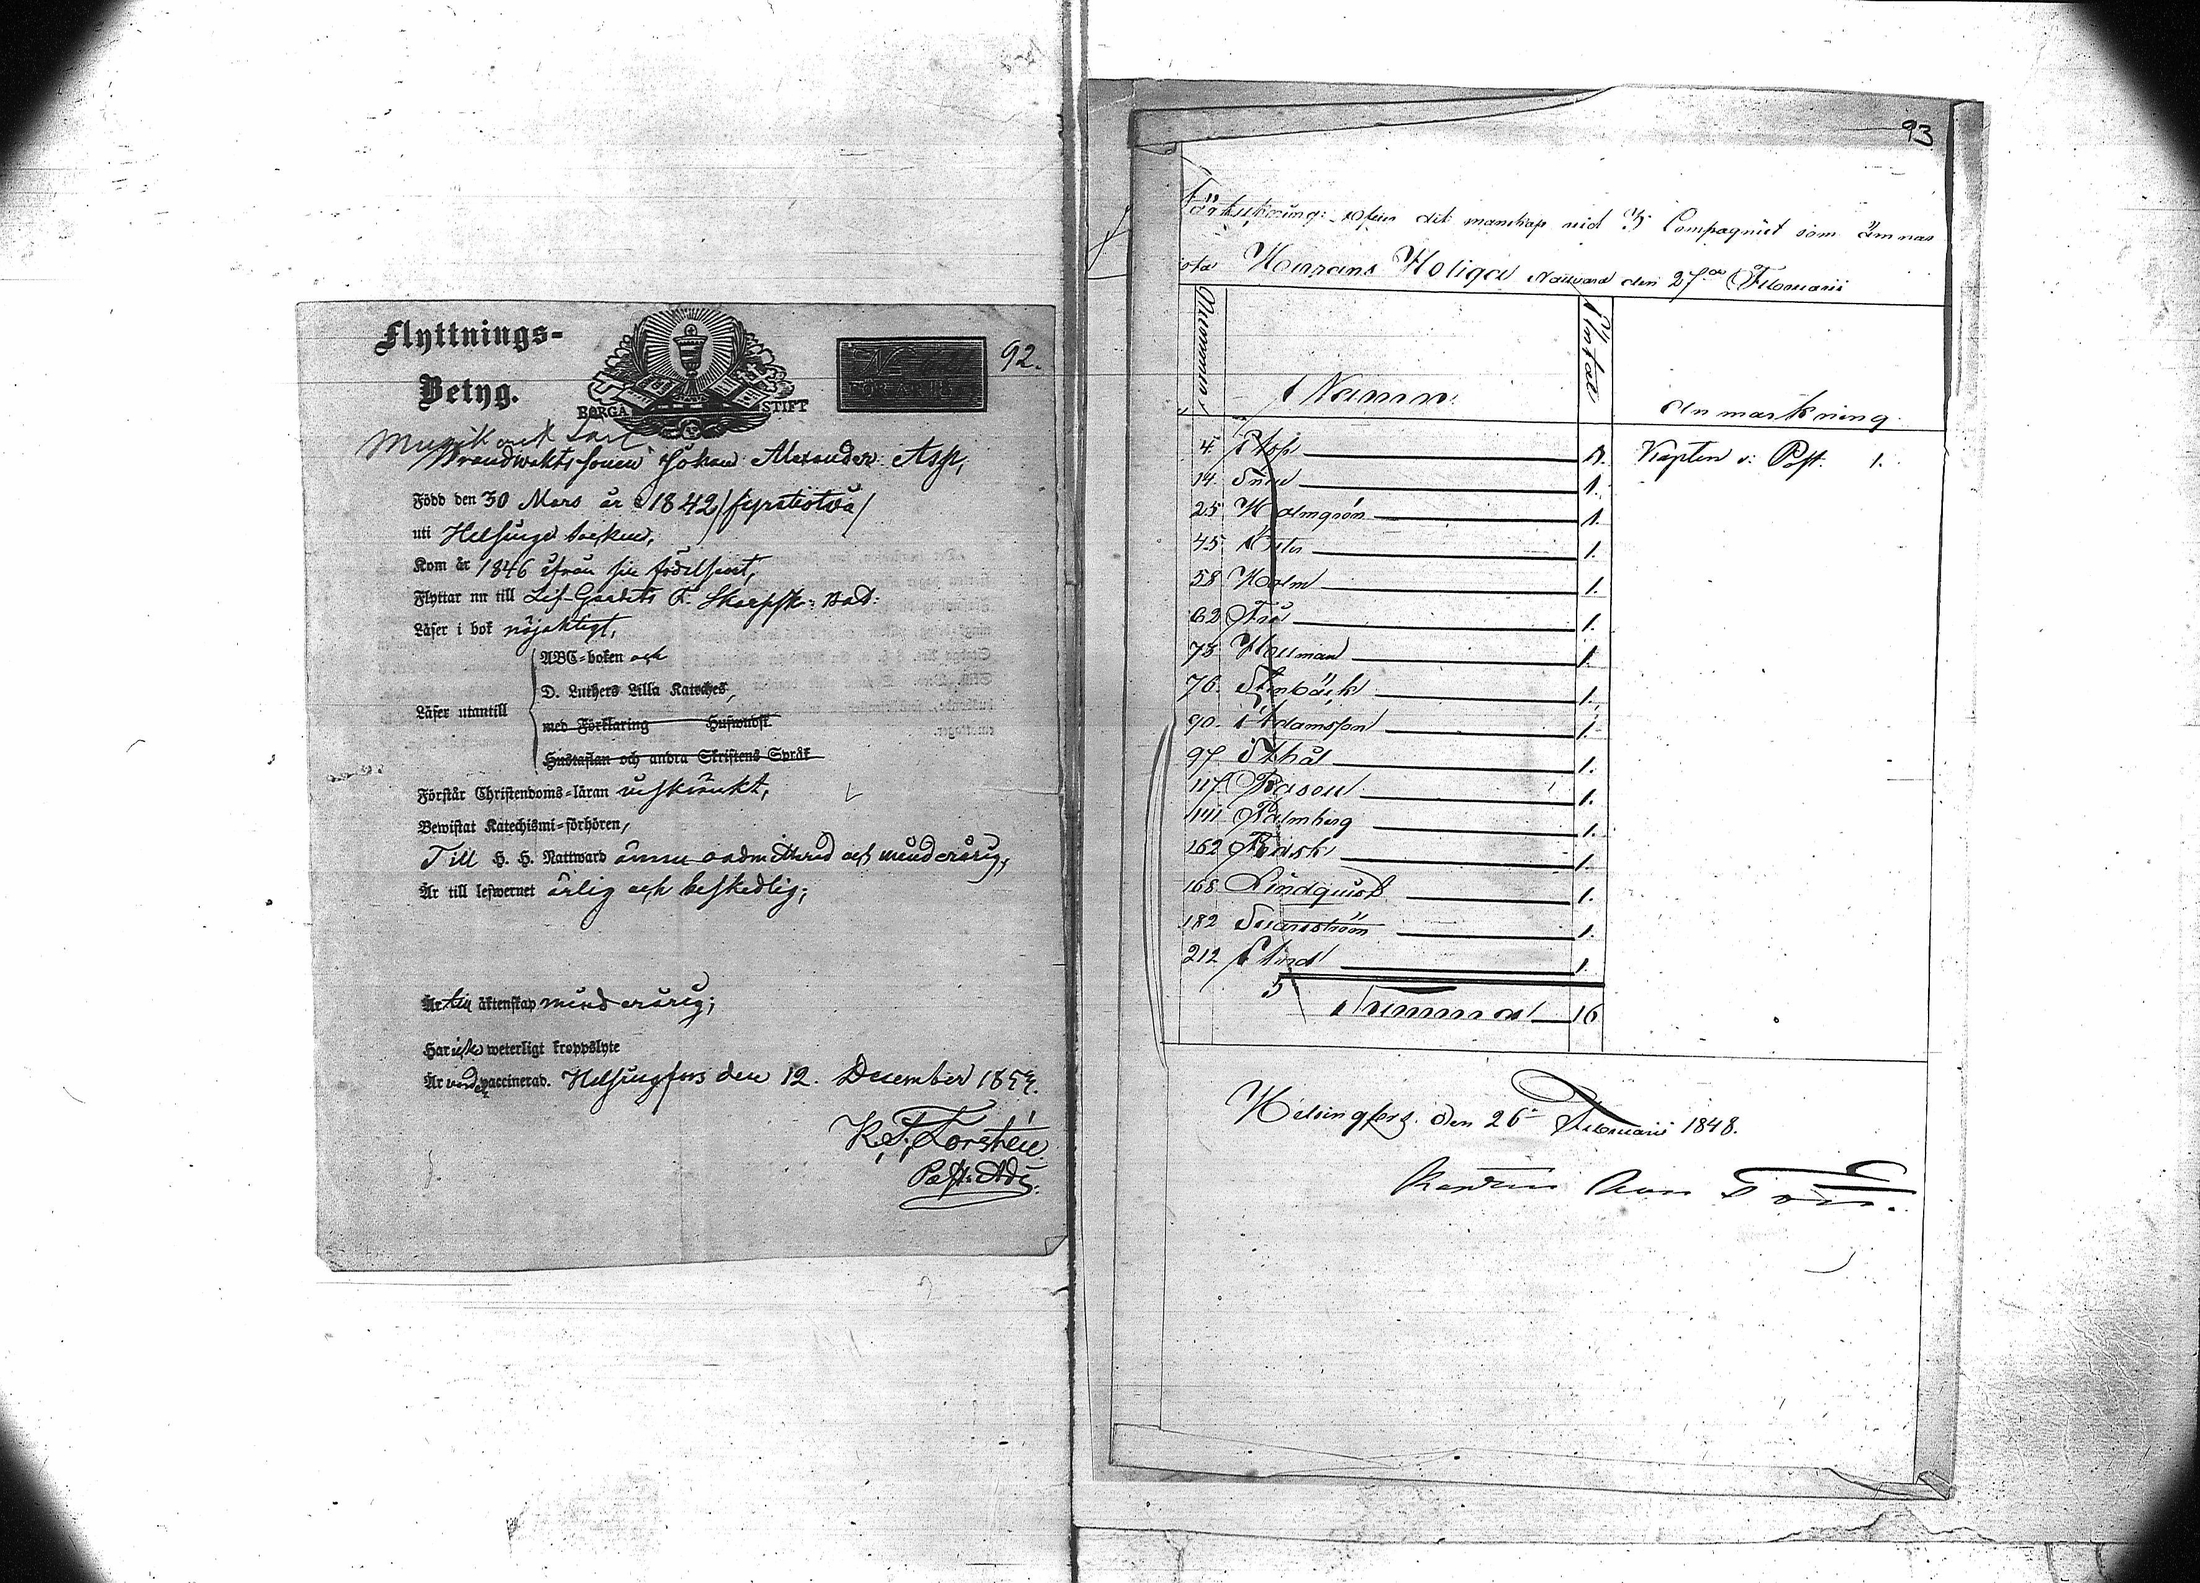 Flyttnings-
Betyg.
BORGÅ STIFT
92.
Musik
Brandwakts sonen Johan Alexander Asp,
Född den 30 Mars år 1842 /fyratiotvå/
uti Helsinge socken,
Kom år 1846 ifrån sin födelseort,
Flyttar nu till Lif-Gardets F. Skarpsk: Bat:
Läser i bok nöjaktigt,
ABC-boken och
D. Luthers Lilla Kateches,
Läser utantill
med Förklaring Huswudst
Hustaflan och andra Skriftens Språk
Förstår Christendoms-läran inskränkt,
Bewistat Katechismi-förhören,
Till H. H. Nattward ännu oadmitterad och minderårig,
Är till lefwernet ärlig och beskedlig;
Är till äktenskap minderårig;
Har icke weterligt kroppslyte
Är vaccinerad. Helsingfors den 12. December
K. F. Forstén
Past: Adj.
93
öfver det manskap vid Compagniet som ämnas
Herrans Heliga Nattvard den 27de Februarii
Nummer
Namn
Antal
Anmärkning
4 Asp 1. Kapten v: Post. 1.
14 1.
25 Holmgrén 1.
45 1.
58 Holm 1.
62 1.
75 1.
76 Stenbäck 1.
90 Adamsson 1.
97 Sthål 1.
117 1.
141 Palmberg 1.
162 Rask 1.
168 Lindquist 1.
182 1.
212 Lind 1.
5
Summa 16
Helsingfors den 26 Februarii 1848.